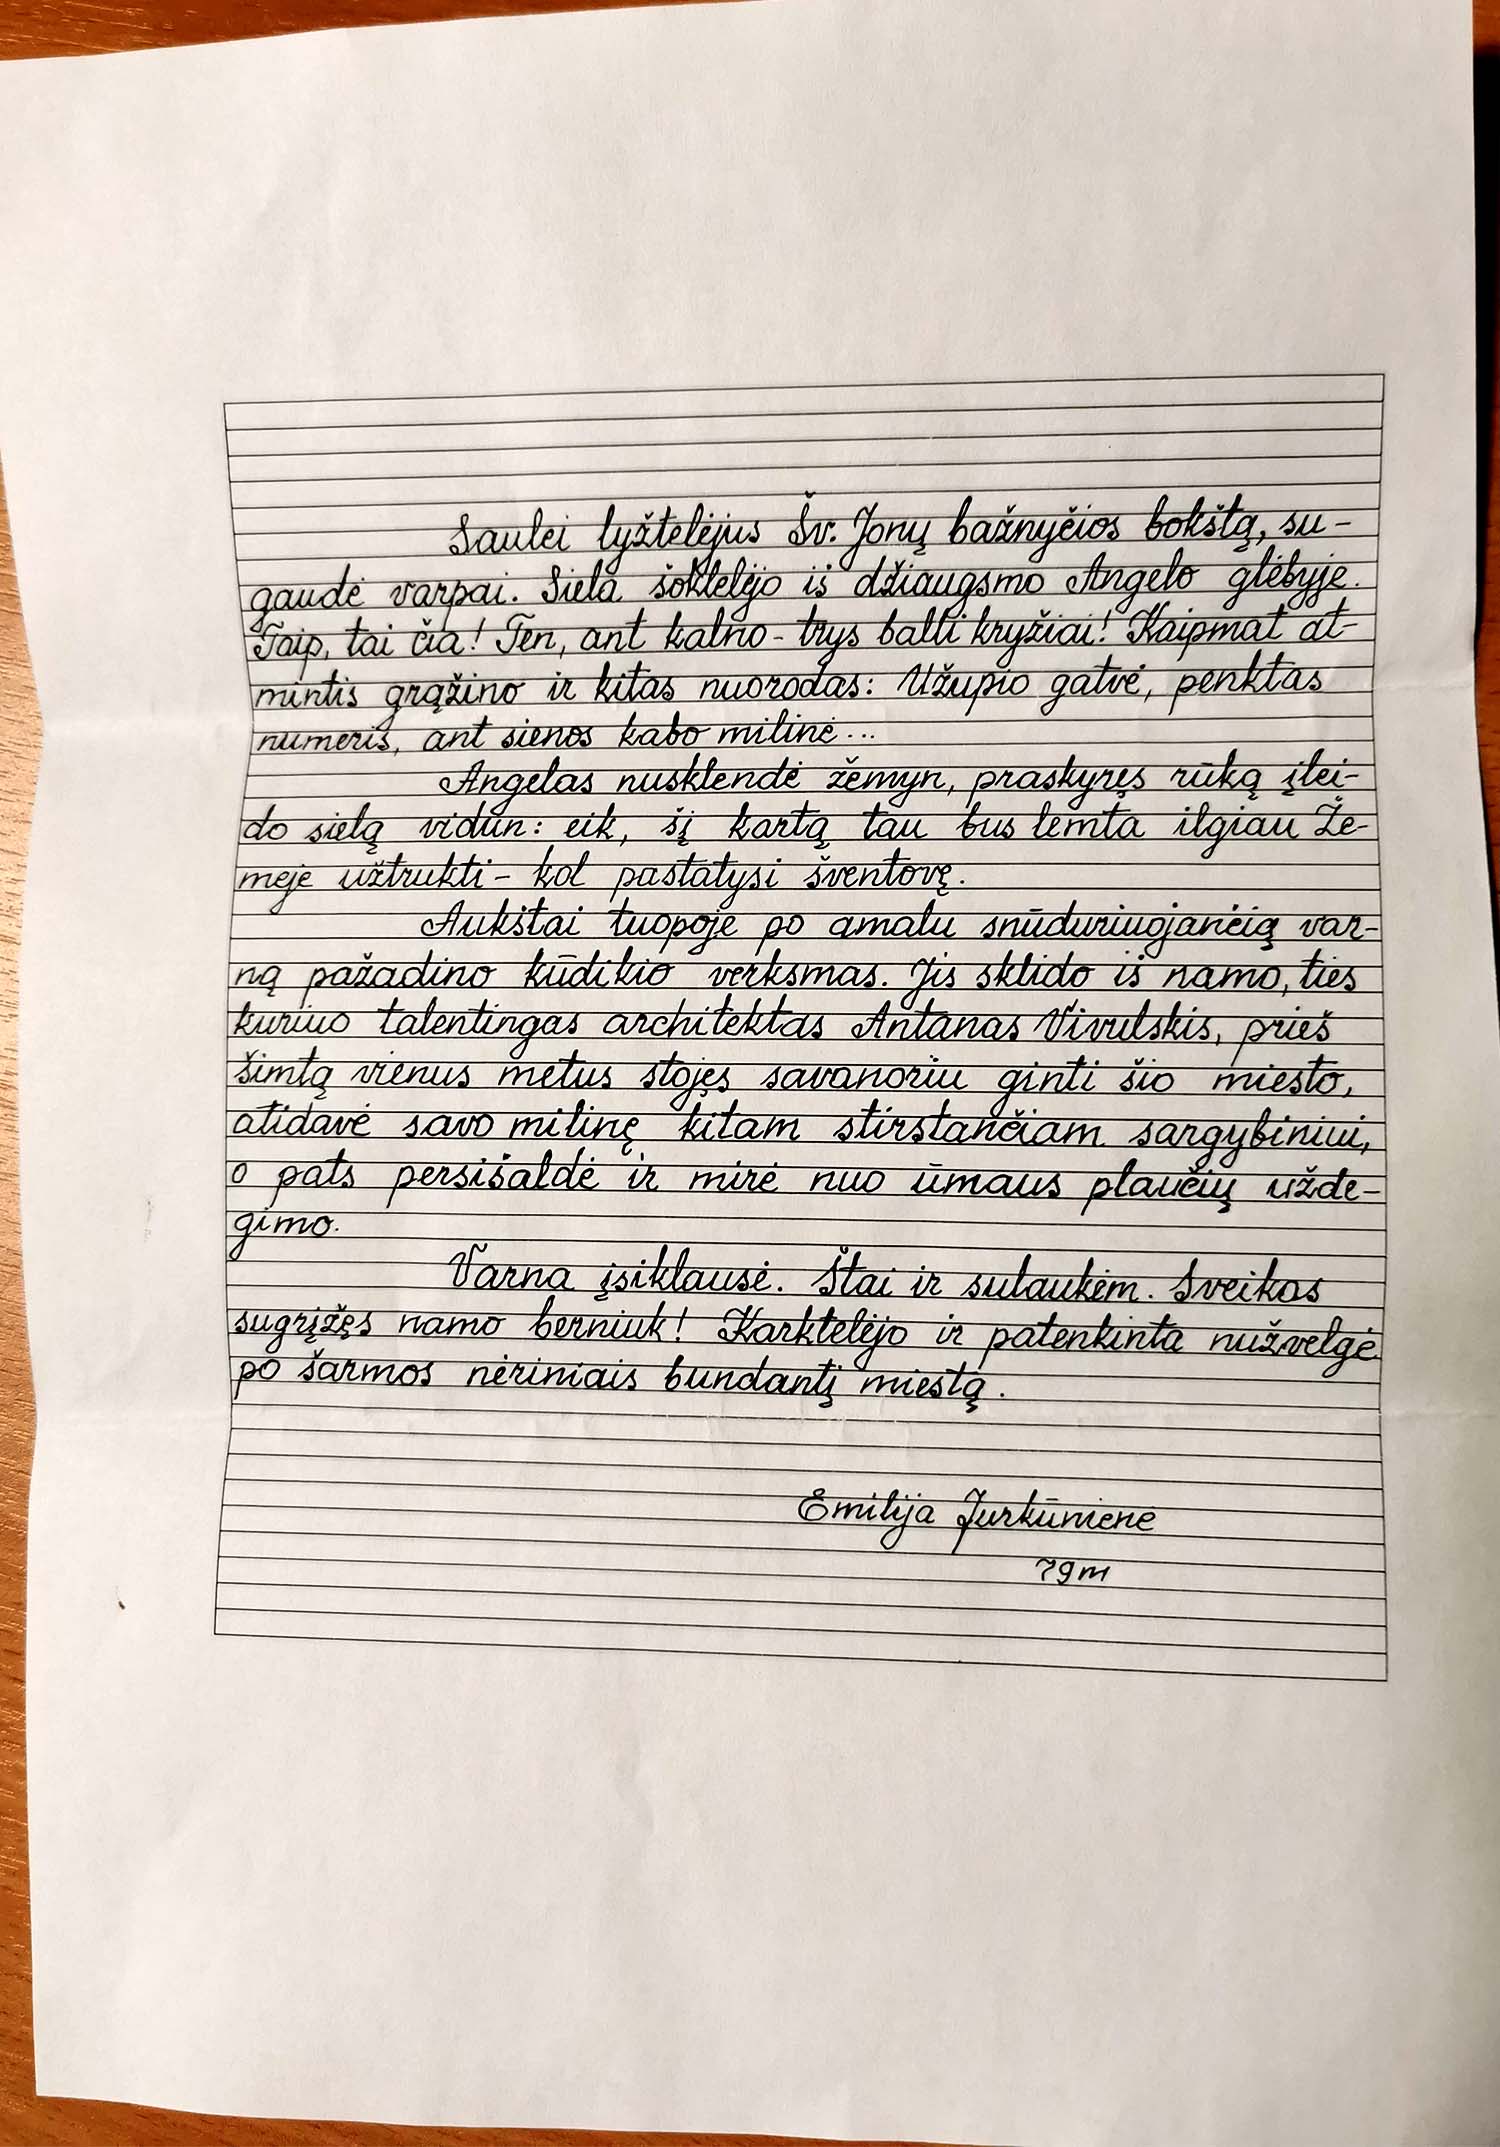 Saulei lyžtelėjus Šv. Jonų bažnyčios bokštą, su-
gaudė varpai. Siela šoktelėjo iš džiaugsmo Angelo glėbyje.
Taip, tai čia! Ten, ant kalno - trys balti kryžiai! Kaipmat at-
mintis grąžino ir kitas nuorodas: Užupio gatvė, penktas
numeris, ant sienos kabo milinė...
Angelas nusklendė žemyn, praskyręs rūką įlei-
do sielą vidun: eik, šį kartą tau bus lemta ilgiau Že-
mėje užtrukti - kol pastatysi šventovę.
Aukštai tuopoje po amalu snūduriuojančią var-
ną pažadino kūdikio verksmas. Jis sklido iš namo, ties
kuriuo talentingas architektas Antanas Vivulskis, prieš
šimtą vienus metus stojęs savanoriu ginti šio miesto,
atidavė savo milinę kitam stirstančiam sargybiniui,
o pats persišaldė ir mirė nuo ūmaus plaučių užde-
gimo.
Varna įsiklausė. Štai ir sulaukėm. Sveikas
sugrįžęs namo berniuk! Karktelėjo ir patenkinta nužvelgė
po šarmos nėriniais bundantį miestą.
Emilija Jurkūnienė
79m